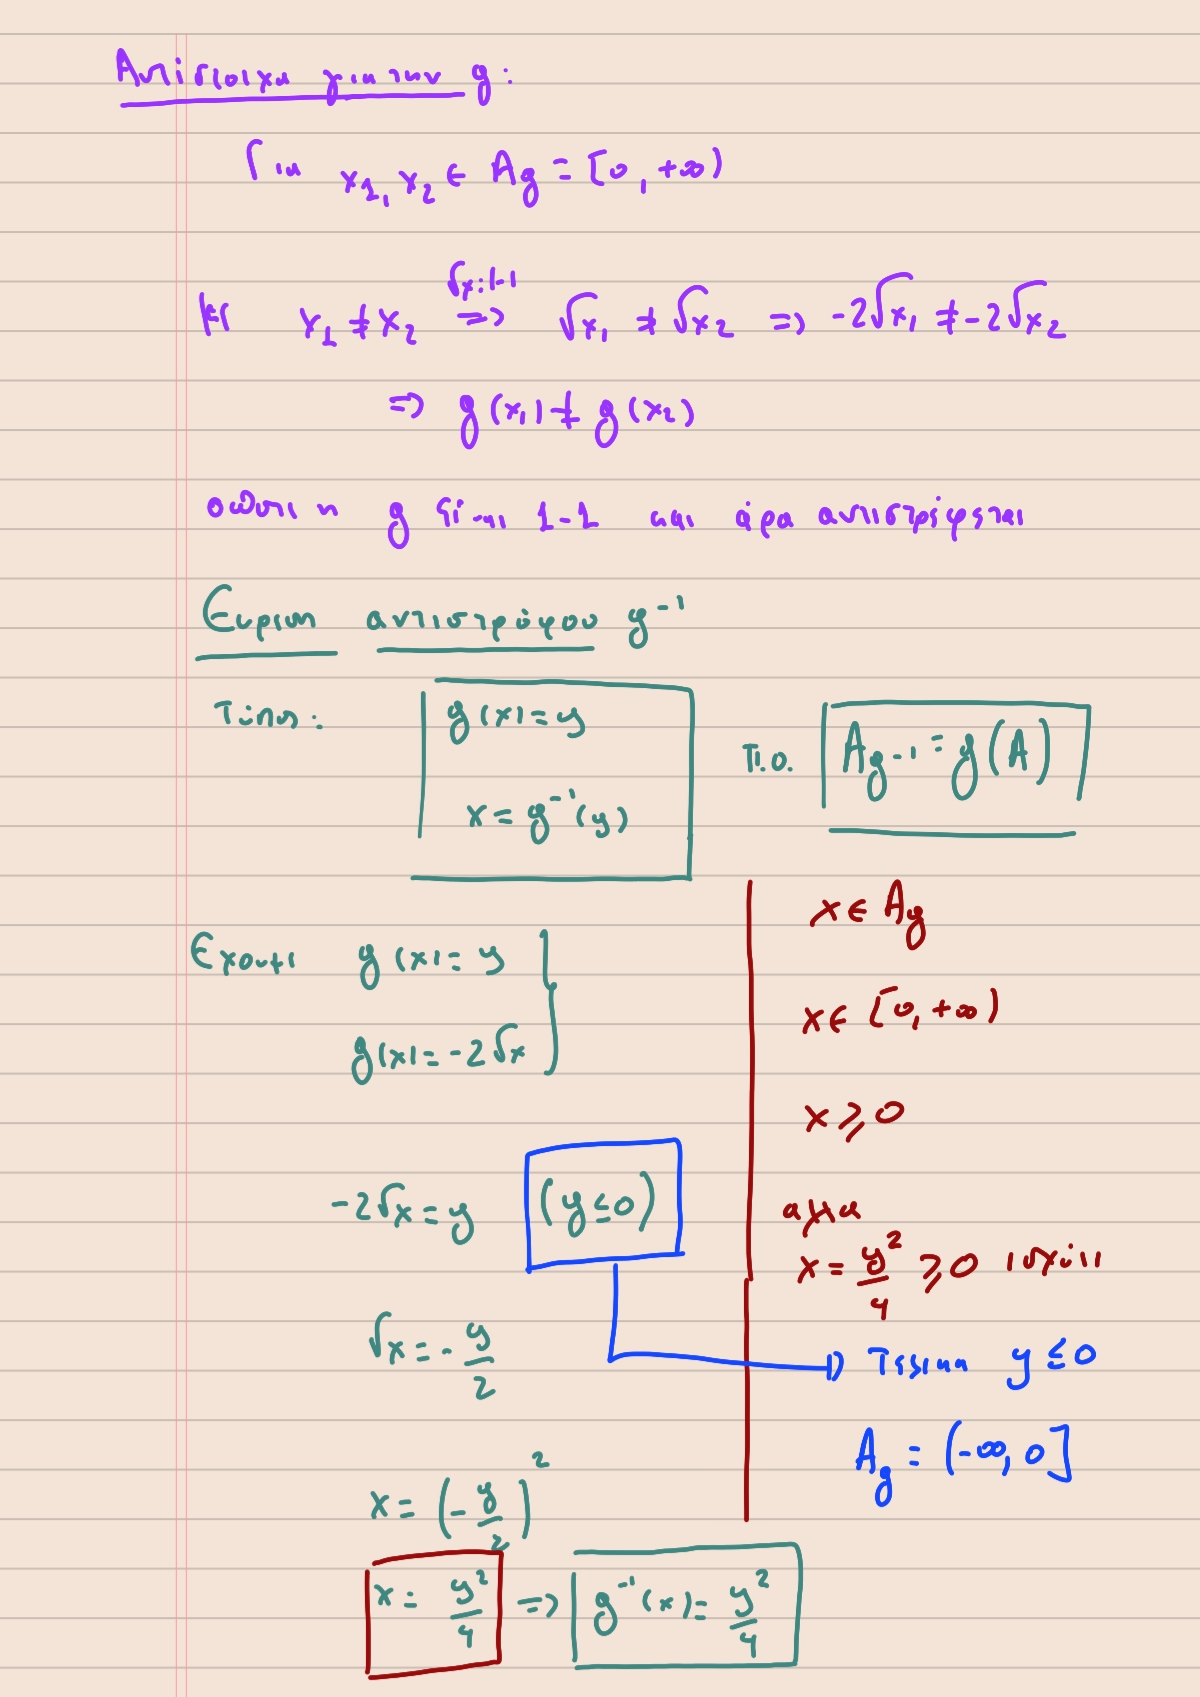 Αντίστοιχα για την g:
Για x₁, x₂ ∈ Ag = [0, +∞)
με x₁ ≠ x₂ ⇒ (√x: 1-1) √x₁ ≠ √x₂ ⇒ -2√x₁ ≠ -2√x₂
⇒ g(x₁) ≠ g(x₂)
οπότε η g είναι 1-1 και άρα αντιστρέφεται
Εύρεση αντιστρόφου g⁻¹
Τύπος: g(x) = y
x = g⁻¹(y)
Π.Ο. A_g⁻¹ = g(A)
Έχουμε g(x) = y
g(x) = -2√x
-2√x = y (y ≤ 0)
√x = -y/2
x = (-y/2)²
x = y²/4 ⇒ g⁻¹(x) = y²/4
x ∈ Ag
x ∈ [0, +∞)
x ⩾ 0
αλλά
x = y²/4 ⩾ 0 ισχύει
⇒ Τελικα y ≤ 0
Ag = (-∞, 0]